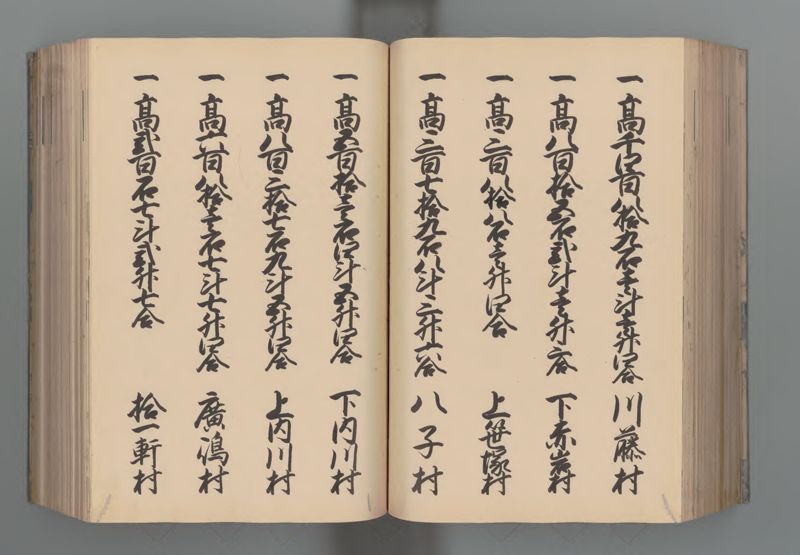 一 高千四百八拾九石壱斗壱升四合 川藤村
一 高八百拾五石弐斗壱升六合 下赤岩村
一 高三百八拾八石壱升四合 上笹塚村
一 高三百七拾九石八斗三升六合 八子村
一 高五百拾壱石四斗五升四合 下内川村
一 高八百三拾七石九斗五升四合 上内川村
一 高六百八拾壱石七斗七升四合 廣嶋村
一 高弐百石七斗弐升七合 拾一軒村